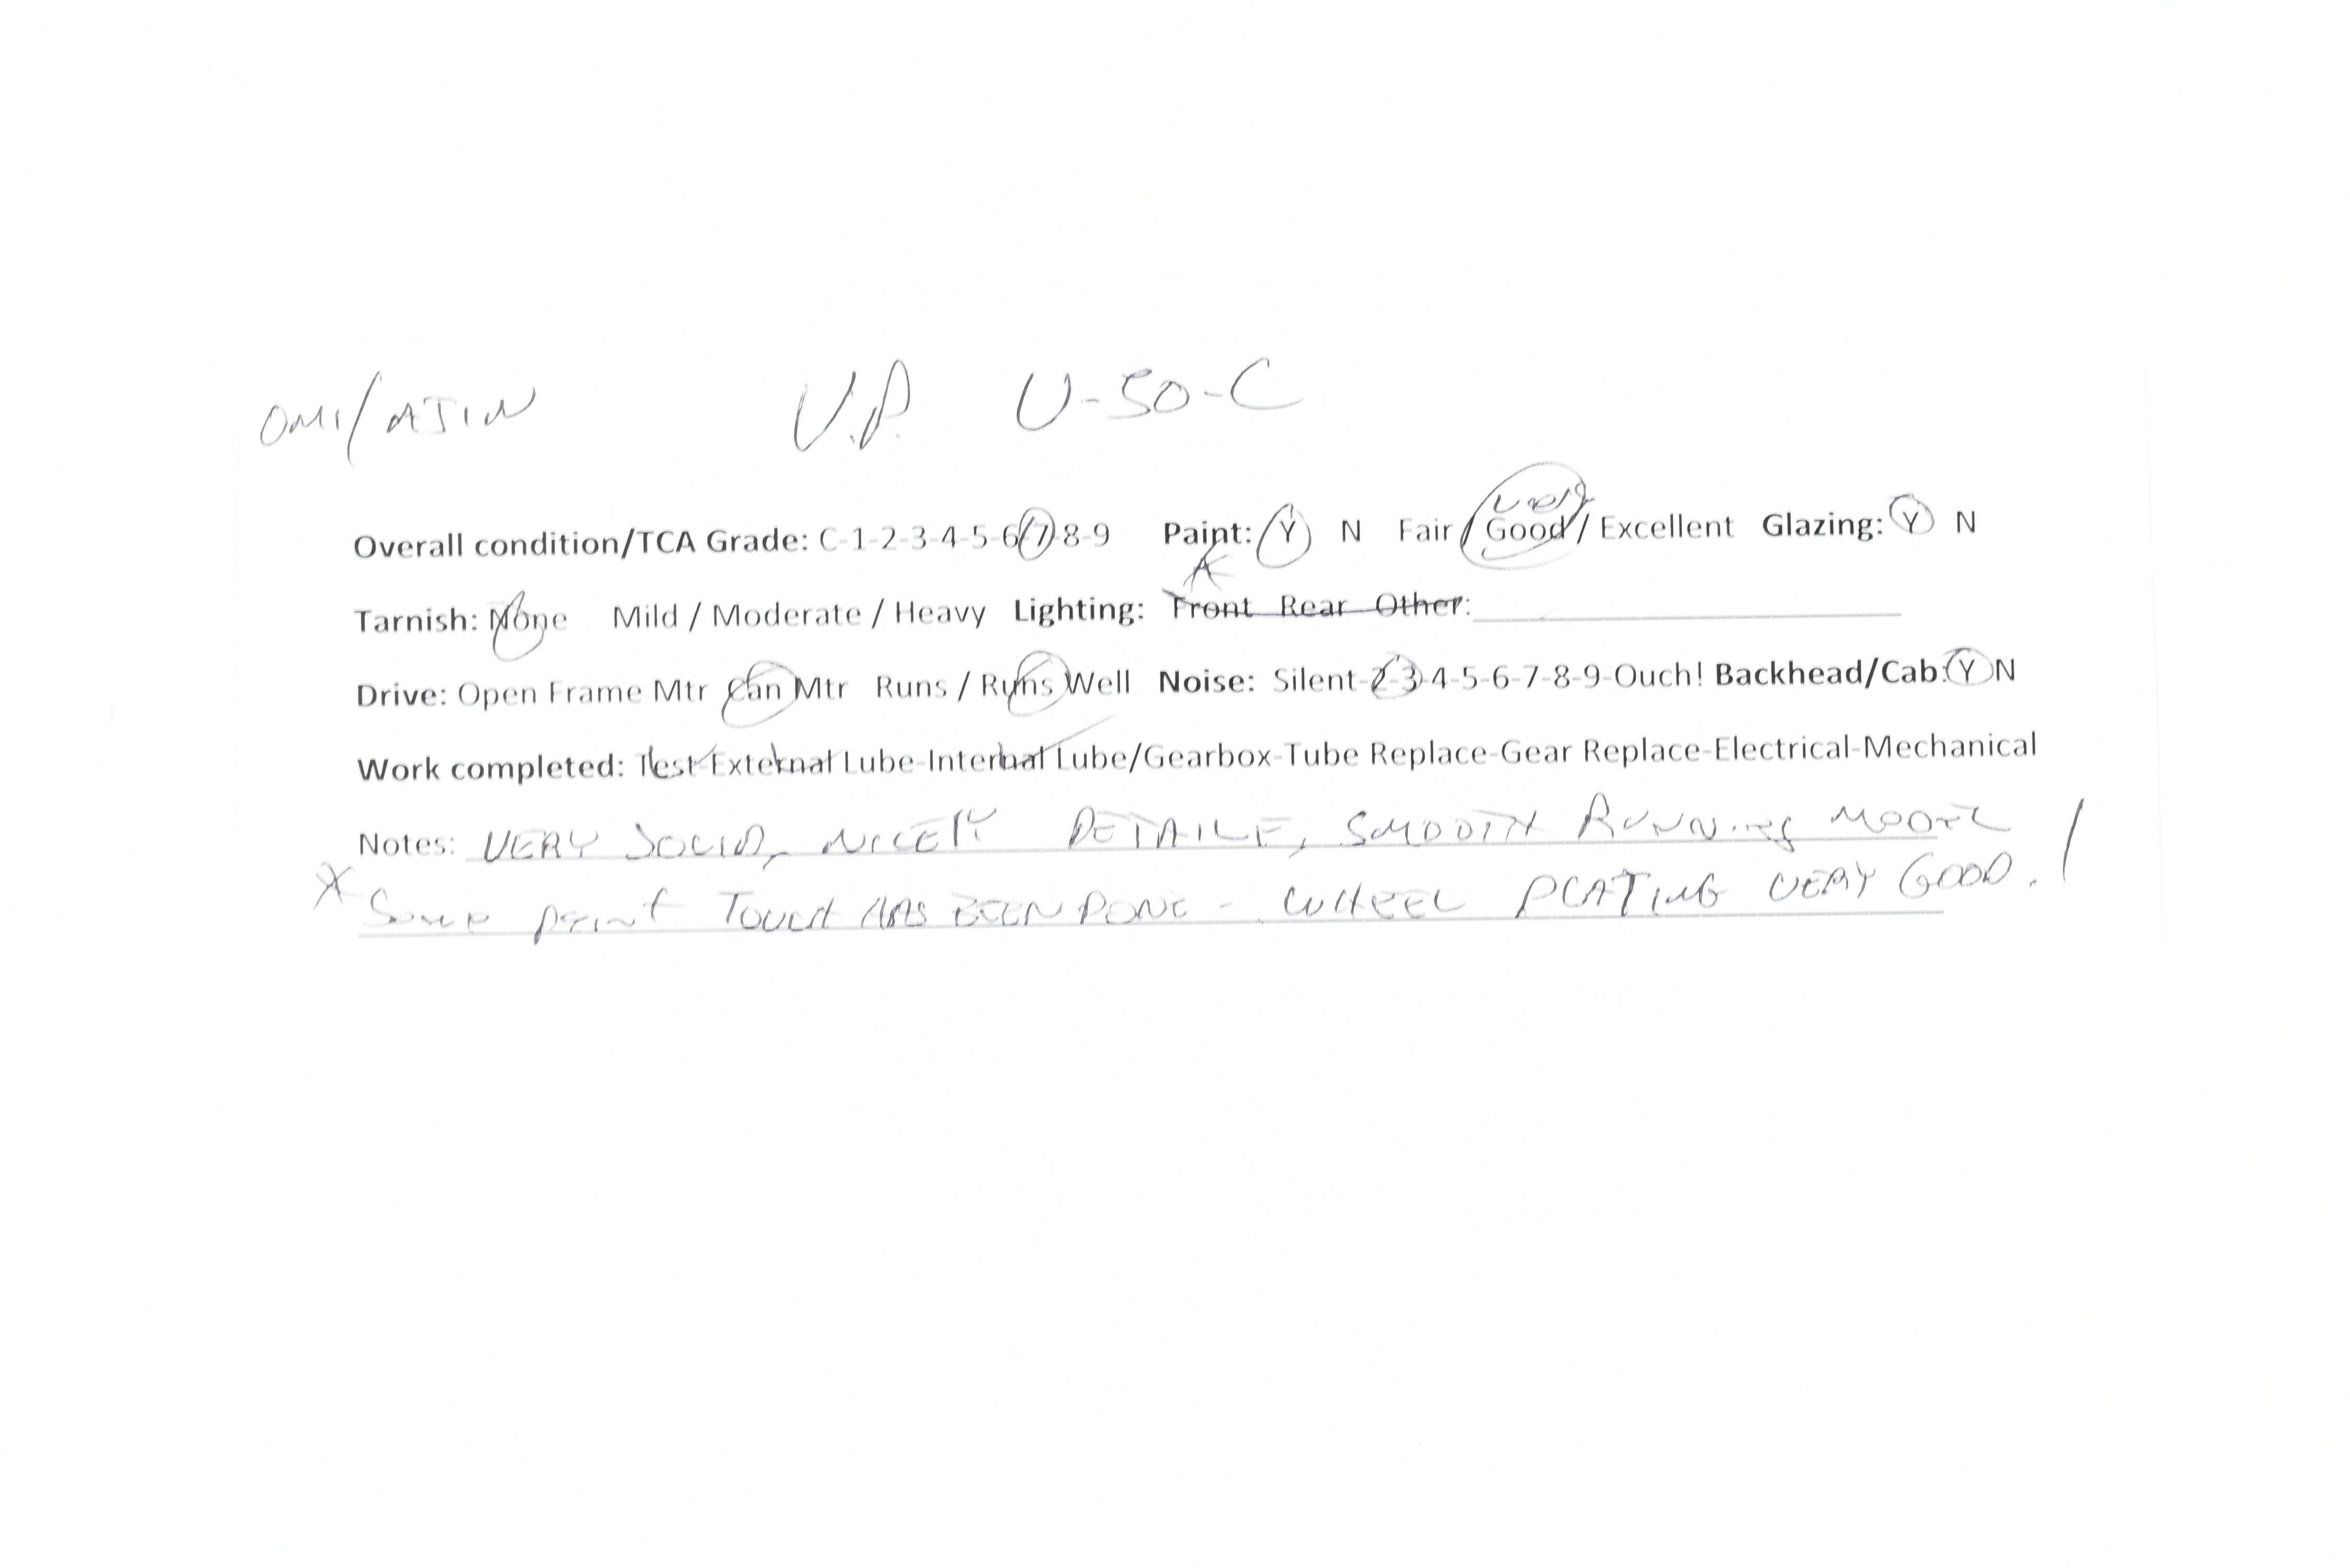 OMI/AJIN U.P. U-50-C
Overall condition/TCA Grade: C-1-2-3-4-5-6-7-8-9 Paint: Y N Fair / Very Good / Excellent Glazing: Y N
Tarnish: None Mild / Moderate / Heavy Lighting: Front Rear Other:
Drive: Open Frame Mtr Can Mtr Runs / Runs Well Noise: Silent-2-3-4-5-6-7-8-9-Ouch! Backhead/Cab: Y N
Work completed: Test-External Lube-Internal Lube/Gearbox-Tube Replace-Gear Replace-Electrical-Mechanical
Notes: VERY SOLID, NICELY DETAILE, SMOOTH RUNNING MODEL !
* Some paint TOUCH HAS BEEN DONE - WHEEL PLATING VERY GOOD.